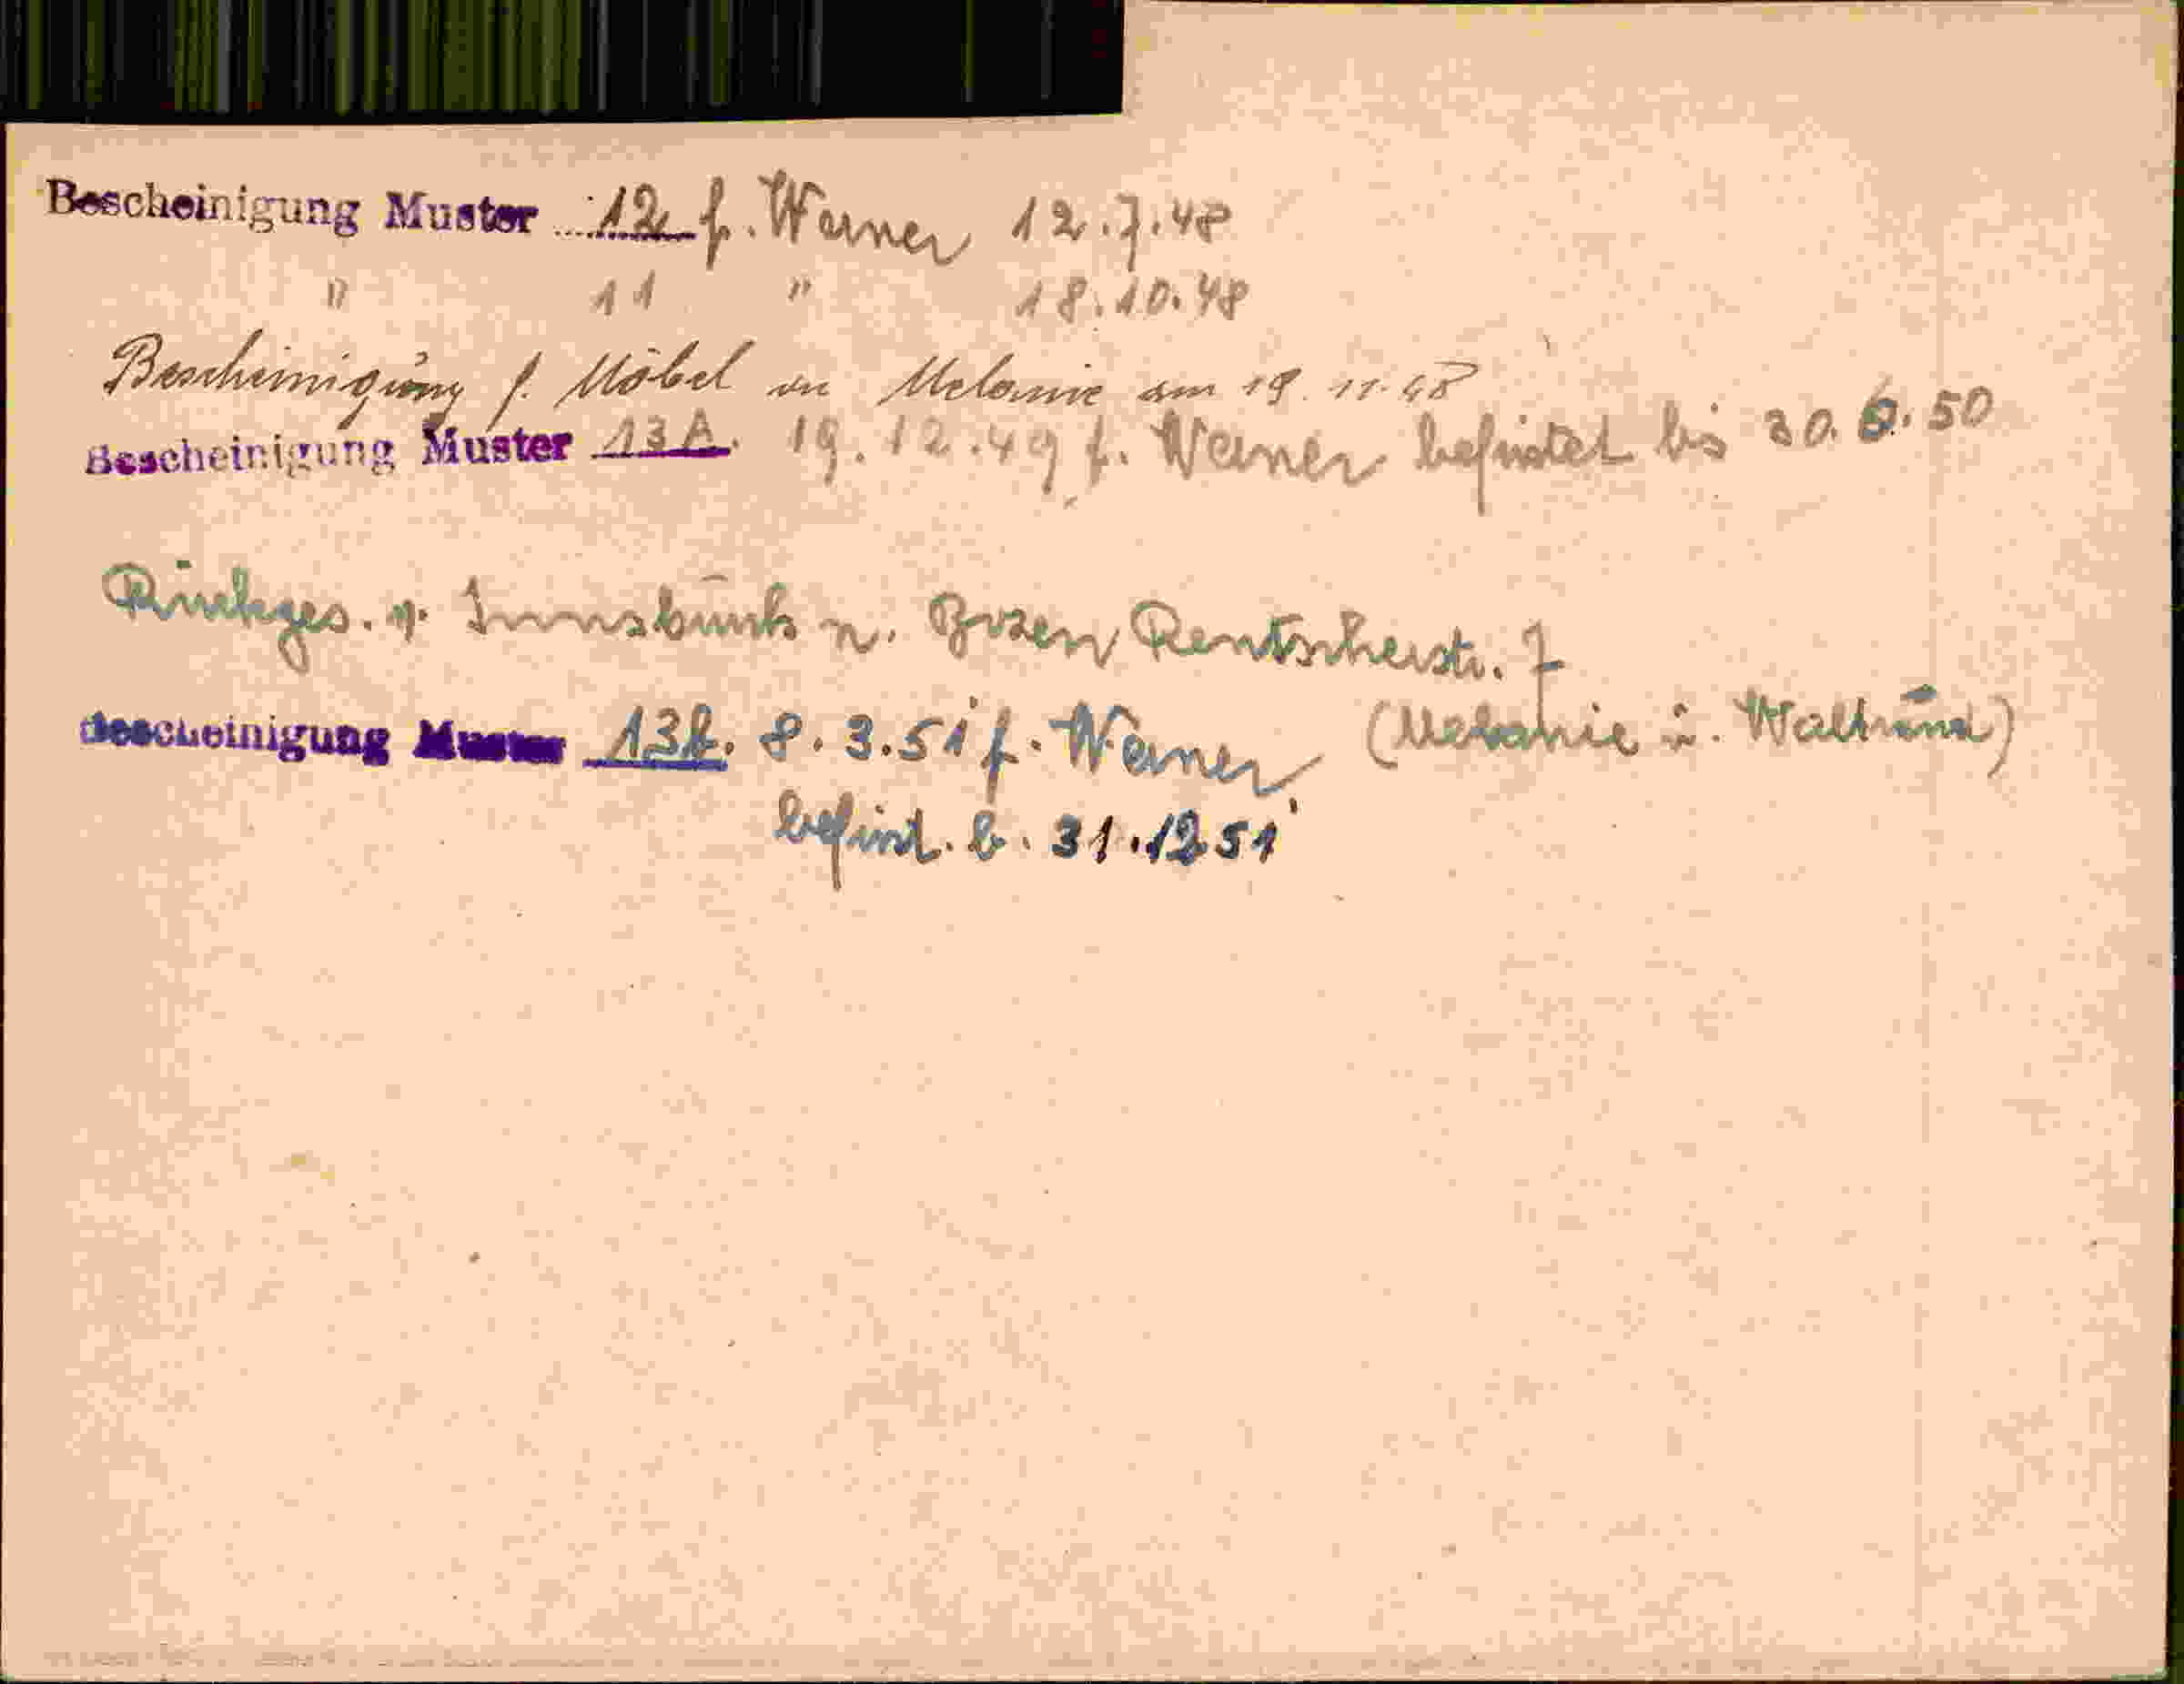 Bescheinigung Muster 12 f. Werner 12.7.48
" 11 " 18.10.48
Bescheinigung f. Möbel an Melanie am 19.11.48
Bescheinigung Muster 13A. 19.12.49 f. Werner befristet bis 30.6.50
Rückges. v. Innsbruck n. Bozen Rentscherstr. 7
(Melanie u. Waltraud)
Bescheinigung Muster 13A. 8.3.51 f. Werner
befrist. b. 31.12 51